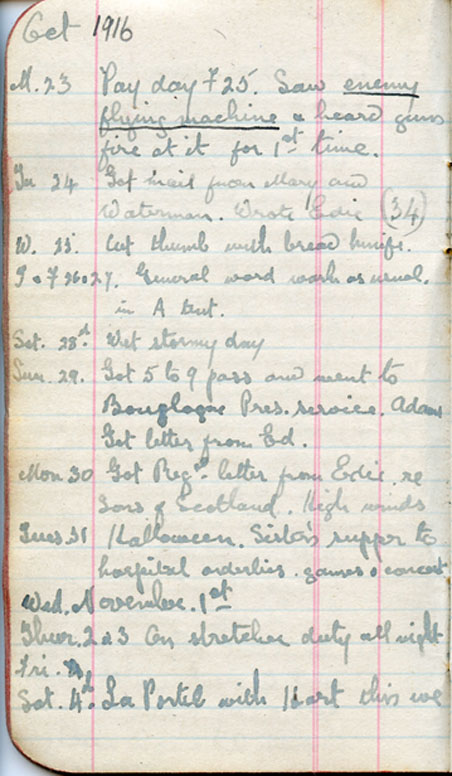 Oct 1916
M. 23 Pay day F 25. Saw enemy
flying machine & heard guns
fire at it for 1st time.
Tu 24 Got mail from Mary and
Waterman. Wrote Edie (34)
W. 25. Cut thumb with bread knife.
T & F 26 & 27. General ward work as usual.
in A tent.
Sat. 28th. Wet stormy day
Sun. 29. Got 5 to 9 pass and went to
Bouglogne Pres. service. Adam
Get letter from Ed.
Mon 30 Got Regd letter from Edie re
Sons of Scotland. High winds
Tues. 31 Halloween. Sister's supper to
hospital orderlies. games & concert
Wed. November. 1st
Thur. 2 & 3 On stretcher duty all night
Fri.
Sat. 4th. La Portel with Hart this we